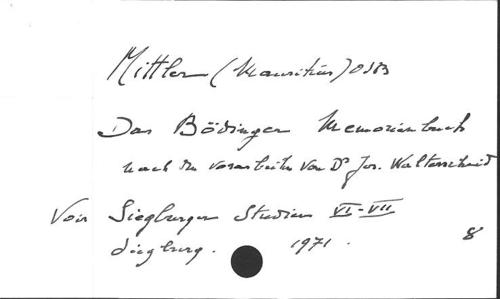 Mittler (Mauritius) OSB
Das Bödinger Memorienbuch
nach den vorarbeiten von Dr Jos. Walterscheid
Voir Siegburger Studien VI-VII
Siegburg. 1971. 8